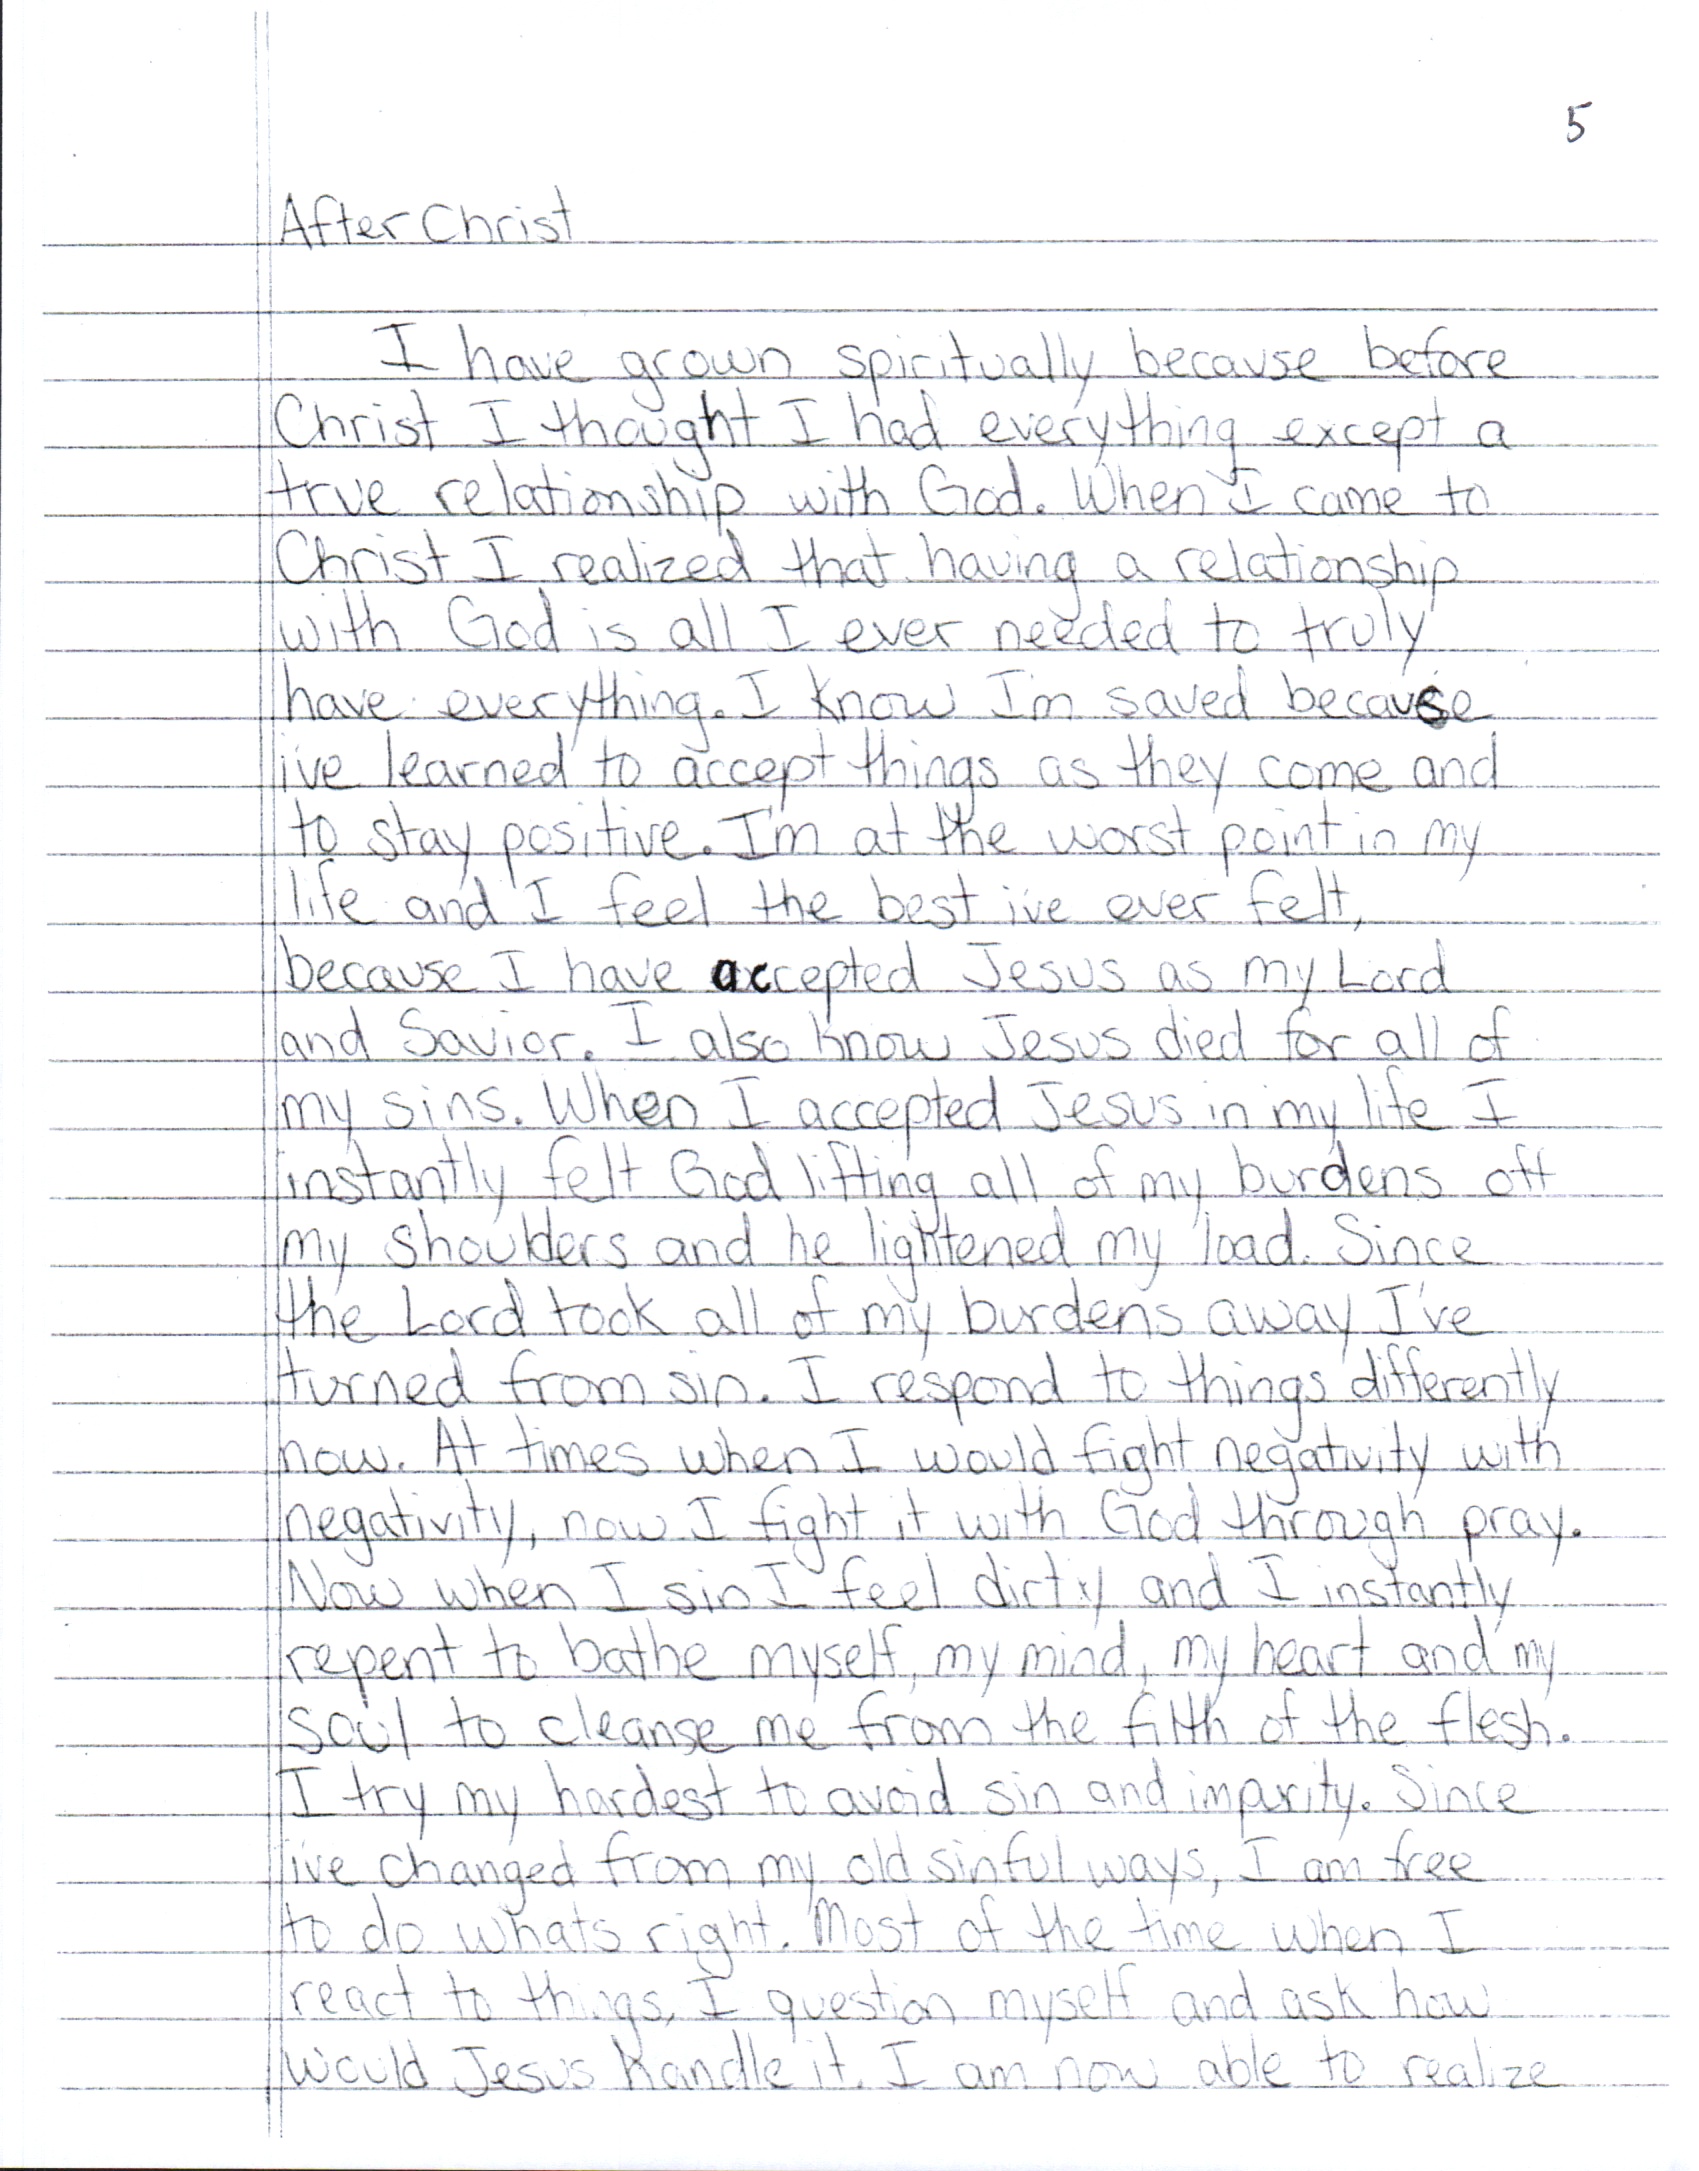 5
After Christ
I have grown spiritually because before
Christ I thought I had everything except a
true relationship with God. When I came to
Christ I realized that having a relationship
with God is all I ever needed to truly
have everything. I know I'm saved because
ive learned to accept things as they come and
to stay positive. I'm at the worst point in my
life and I feel the best ive ever felt,
because I have accepted Jesus as my Lord
and Savior. I also know Jesus died for all of
my sins. When I accepted Jesus in my life I
instantly felt God lifting all of my burdens off
my shoulders and he lightened my load. Since
the Lord took all of my burdens away I've
turned from sin. I respond to things differently
now. At times when I would fight negativity with
negativity, now I fight it with God through pray.
Now when I sin I feel dirty and I instantly
repent to bathe myself, my mind, my heart and my
soul to cleanse me from the filth of the flesh.
I try my hardest to avoid sin and impurity. Since
ive changed from my old sinful ways, I am free
to do whats right. Most of the time when I
react to things, I question myself and ask how
would Jesus handle it. I am now able to realize